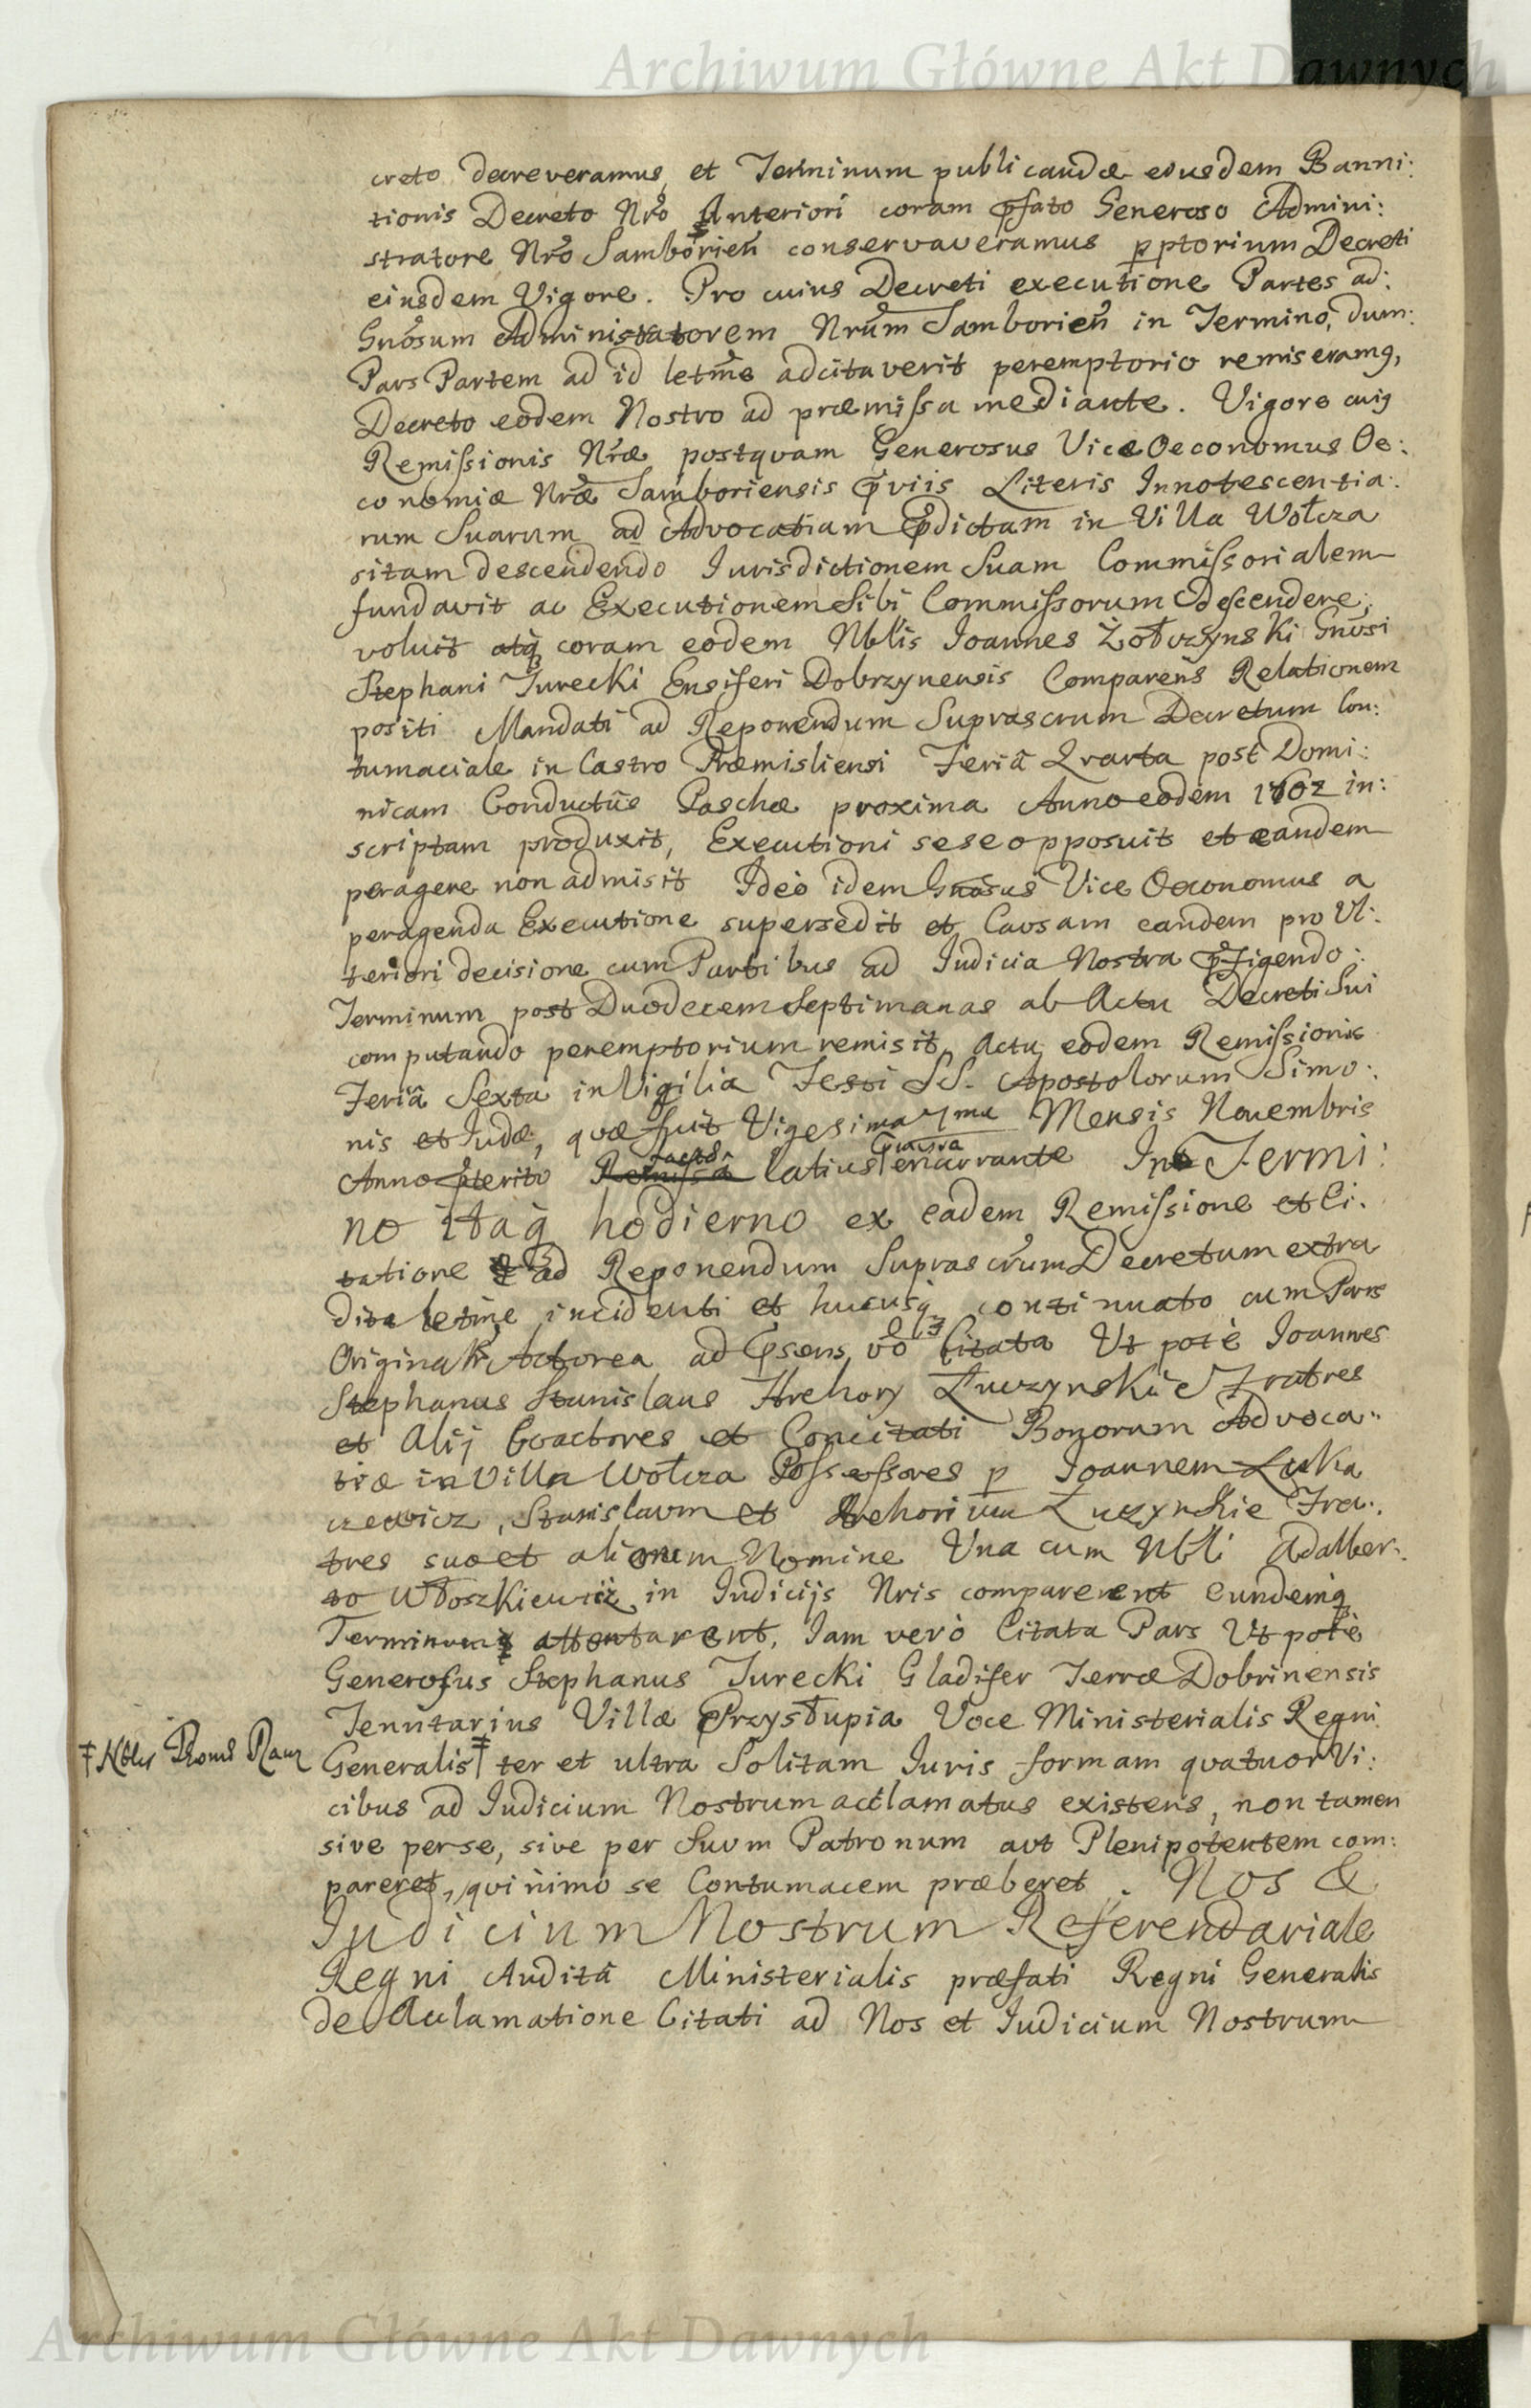 Archiwum Główne Akt Dawnych
creto decreveramus, et Terminum publicandæ eiusdem Banni:
tionis Decreto Nro Anteriori coram pfato Generoso Admini:
stratore Nro Samborien conservaveramus pptorium Decreti
eiusdem Vigore. Pro cuius Decreti executione Partes ad:
Gnosum Administratorem Nrum Samborien in Termino, dum:
Pars Partem ad id letme adcitaverit peremptorio remiseramq,
Decreto eodem Nostro ad præmissa mediante. Vigore cuiq
Remissionis Nræ postquam Generosus Vice Oeconomus Oe:
conomiæ Nræ Samboriensis pviis Literis Innotescentia:
rum Suarum ad Advocatiam pdictam in Villa Wołcza
sitam descendendo Iurisdictionem Suam Commissorialem
fundavit ac Executionem Sibi Commissorum descendere,
voluit atq coram eodem Nblis Ioannes Żołczynski Gnosi
Stephani Turecki Ensiferi Dobrzynensis Comparens Relationem
positi Mandati ad Reponendum Suprascrum Decretum Con:
tumaciale in Castro Præmisliensi Feriâ Qvarta post Domi:
nicam Conductûs Paschæ proxima Anno eodem 1702 in:
scriptam produxit, Executioni sese opposuit et eandem
peragere non admisit Ideò idem Gnosus Vice Oeconomus a
peragenda Executione supersedit et Causam eandem pro Ul:
teriori decisione cum Partibus ad Iudicia Nostra pfigendo:
Terminum post Duodecem Septimanas ab Actu Decreti Sui
computando peremptorium remisit, Actu eodem Remissionis
Feriâ Sexta in Vigilia Festi SS. Apostolorum Simo:
nis et Iudæ, quæ fuit Vigesima 7ma Mensis Novembris
Anno pterito Remissa facto latius enarrante In Termi:
no itaq hodierno ex eadem Remissione et Ci:
tatione ad Reponendum Suprascrum Decretum extra
dita letme incidenti et hucusq continuato cum Pars
Originalr Actorea ad psens vo Citata Ut potè Ioannes
Stephanus Stanislaus Hrehory Łuczynskie Fratres
et Alij Coactores et Concitati Bonorum Advoca:
tiæ in Villa Wołcza Possessores p Ioannem Luka
czewicz, Stanislaum et Hrehorium Łuczynskie Fra:
tres suo et aliorum Nomine Una cum Nbli Adalber:
to Włoszkiewicz in Iudicijs Nris comparerent eundemq
Terminum attentarent, Iam verò Citata Pars Ut potè
Generosus Stephanus Turecki Gladifer Terræ Dobrinensis
Tenutarius Villæ Przysłupia Voce Ministerialis Regni
ǂ Nblis
Generalis ǂ ter et ultra Solitam Iuris formam quatuor Vi:
cibus ad Iudicium Nostrum acclamatus existens, non tamen
sive per se, sive per Suum Patronum aut Plenipotentem com:
pareret, quinimò se Contumacem præberet. Nos &
Iudicium Nostrum Referendariale
Regni Auditâ Ministerialis præfati Regni Generalis
de Acclamatione Citati ad Nos et Iudicium Nostrum
Archiwum Główne Akt Dawnych